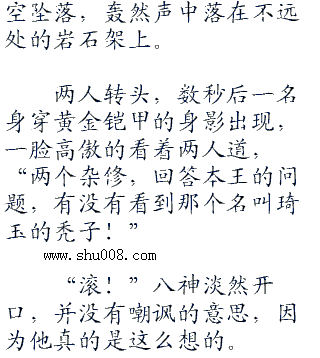 空坠落，轰然声中落在不远
处的岩石架上。
两人转头，数秒后一名
身穿黄金铠甲的身影出现，
一脸高傲的看着两人道，
“两个杂修，回答本王的问
题，有没有看到那个名叫琦
玉的秃子！”
www.shu008.com
“滚！”八神淡然开
口，并没有嘲讽的意思，因
为他真的是这么想的。